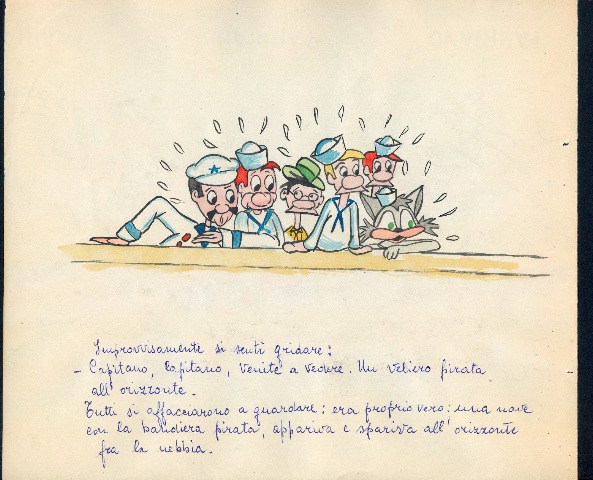 Improvvisamente si sentì gridare:
- Capitano, Capitano, venite a vedere. Un veliero pirata
all'orizzonte.
Tutti si affacciarono a guardare: era proprio vero: una nave
con la bandiera pirata, appariva e spariva all'orizzonte
fra la nebbia.